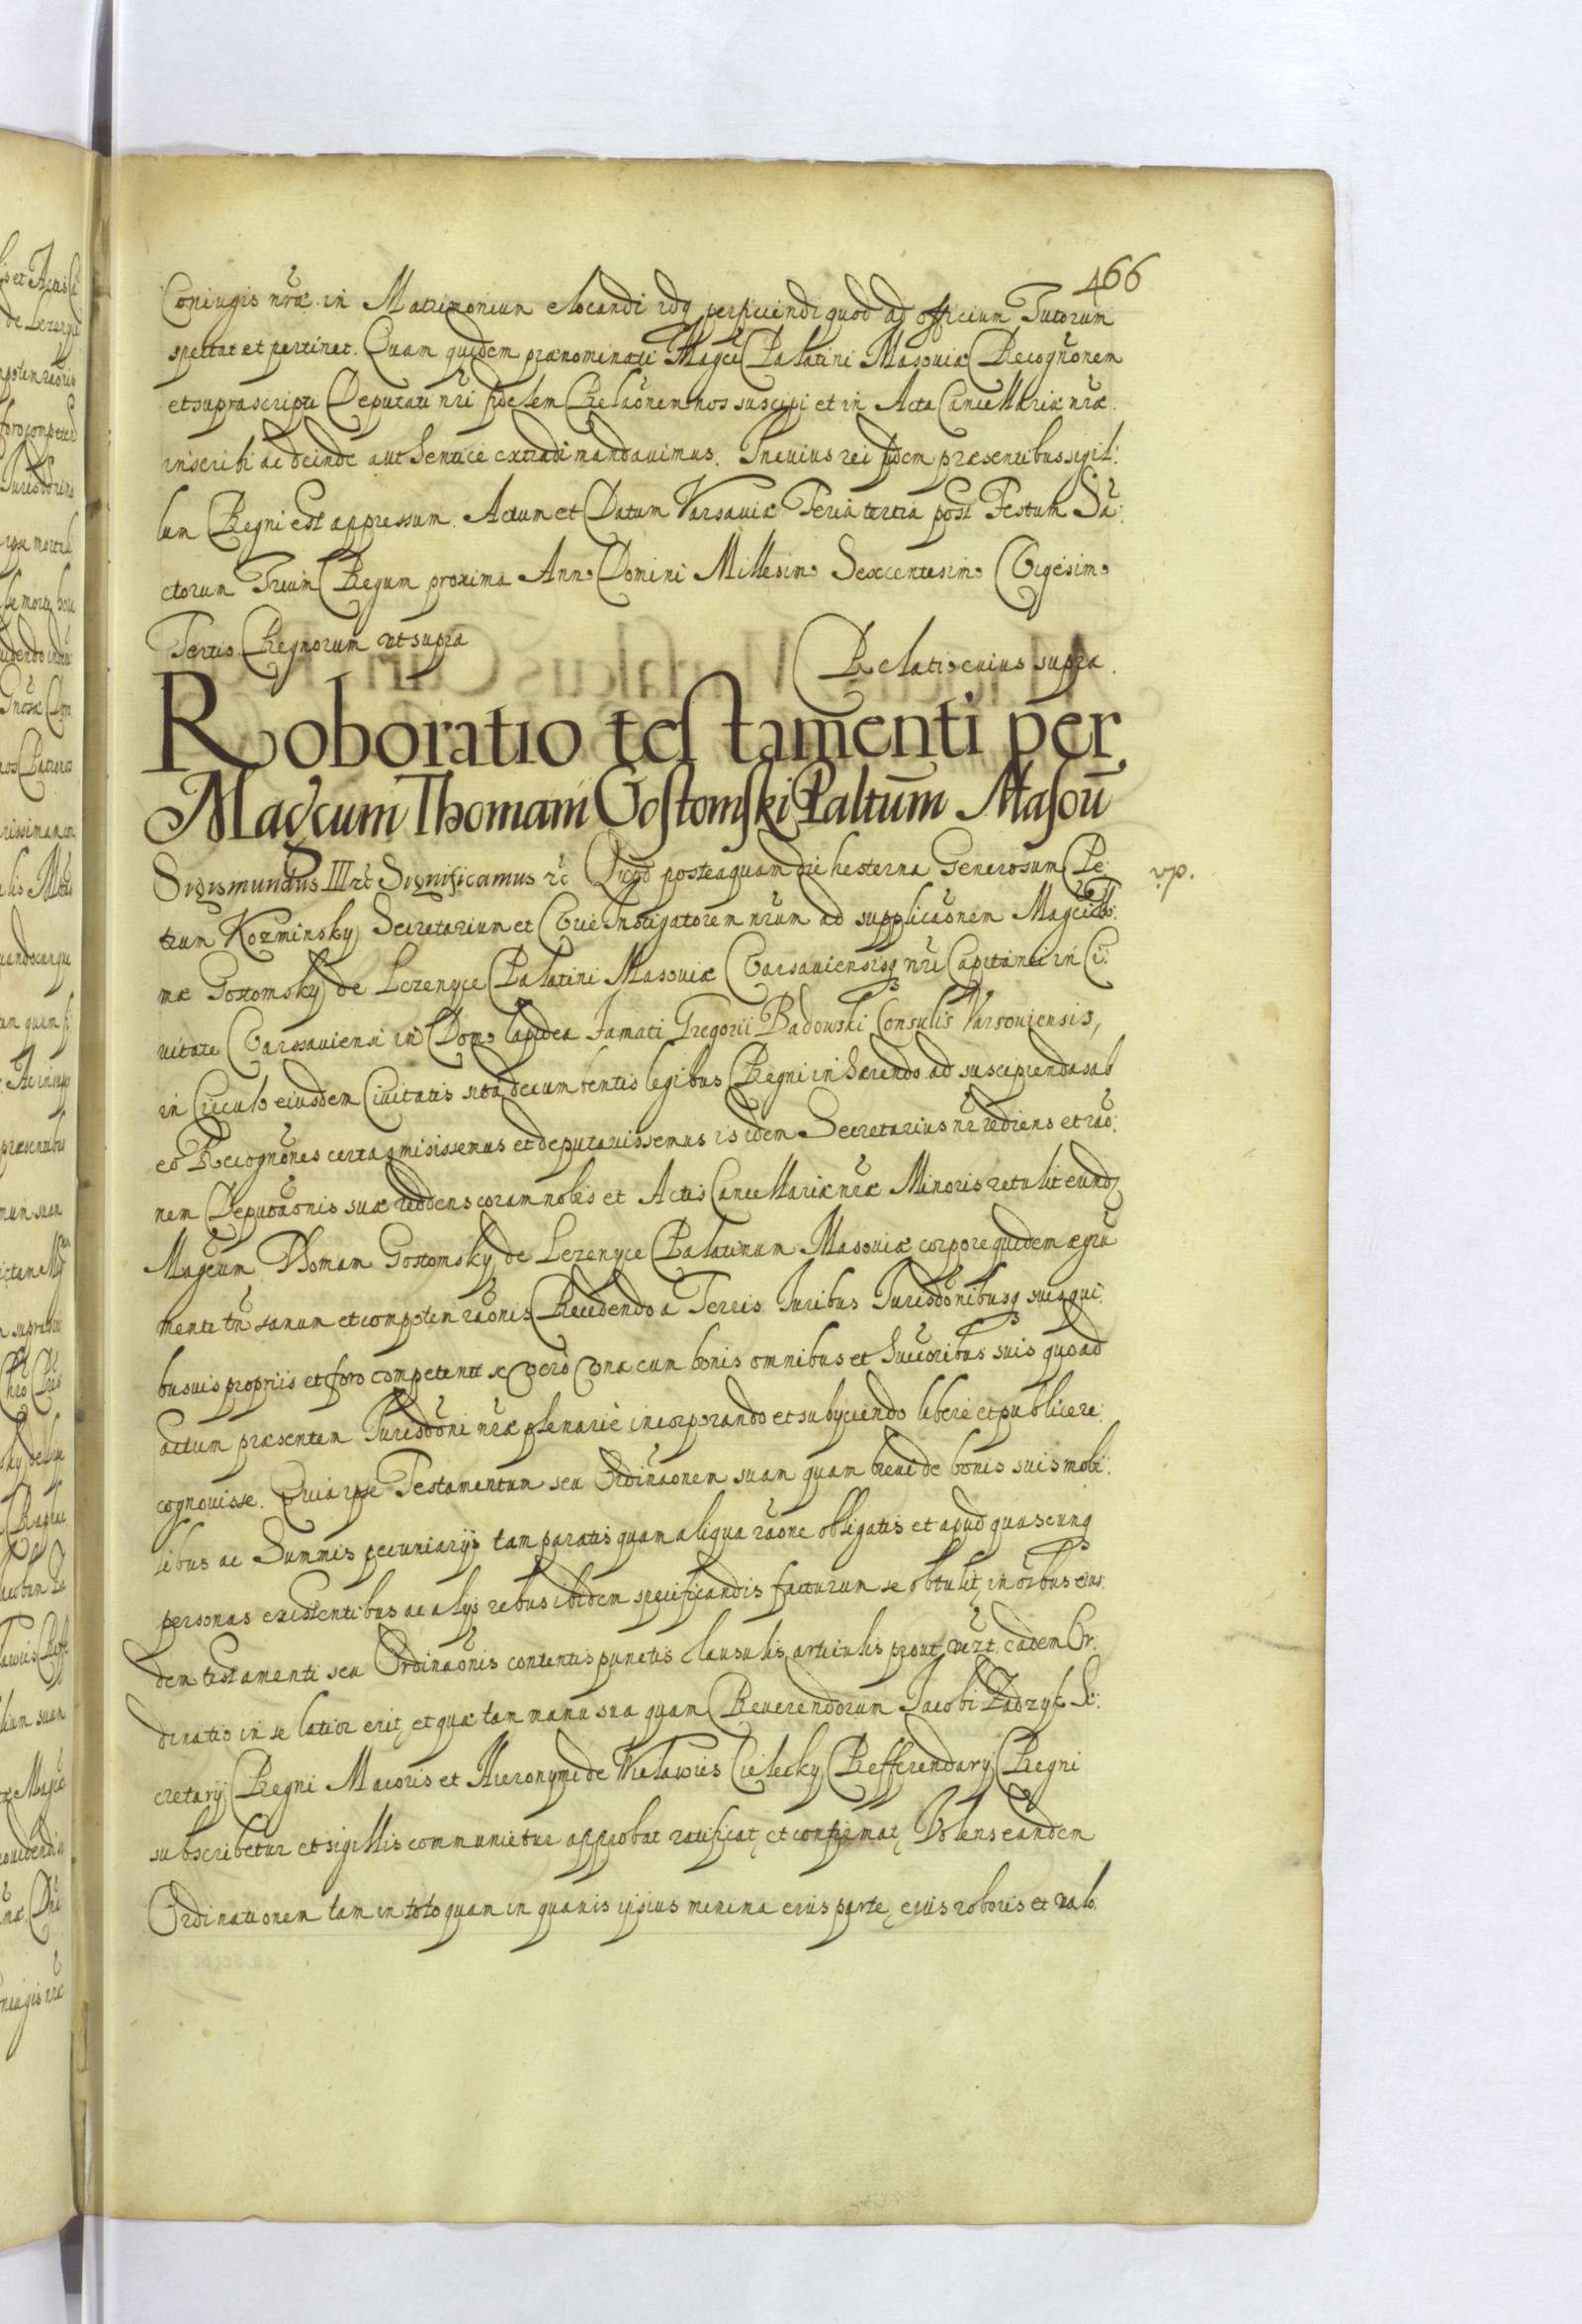 466
Coniugis nrae in Matrimonium elocandi idq perficiendi quod ad officium Tutorum
spectat et pertinet. Quam quidem praenominati Magci Palatini Masoviae Recognonem
et suprascripti Deputati nri fidelem Relaonem nos suscipi et in Acta Cancellariae nrae
inscribi ac deinde authentice extradi mandavimus. In cuius rei fidem praesentibus sigil:
lum Regni est appressum. Actum et Datum Varsaviae Feria tertia post Festum Sa:
ctorum Trium Regum proxima Anno Domini Millesimo Sexcentesimo Vigesimo
Tertio Regnorum ut supra
Relatio cuius supra.
Roboratio testamenti per
Magcum Thomam Gostomski Paltum Masou
Sigismundus III rc Significamus rc Quod posteaquam die hesterna Generosum Pe:
trum Kozminsky Secretarium et Curiae Instigatorem nrum ad supplicaonem Magci Tho:
mae Gostomsky de Lezenyce Palatini Masoviae Varsaviensisq nri Capitanei in Ci:
vitate Varsaviensi in Domo lapidea Famati Gregorii Badowski Consulis Varsoviensis,
in Circulo eiusdem Civitatis sita decumbentis legibus Regni inhaerendo ad suscipiendas ab
eo Recognones certas misissemus et deputavissemus is idem Secretarius nr rediens et rao:
nem Deputaonis suae reddens coram nobis et Actis Cancellariae nrae Minoris retulit eundz
Magcum Thomam Gostomsky de Lezenyce Palatinum Masoviae corpore quidem aegru
mente tn sanum et compotem raonis Recedendo a Terris Iuribus Iurisdonibusq suis qui:
busvis propriis et foro competenti se vero una cum bonis omnibus et Succoribus suis quoad
actum praesentem Iurisdoni nrae plenarie incorporando et subijciendo libere et publice re:
cognovisse. Quia ipse Testamentum seu Ordinaonem suam quam breui de bonis suis mobi:
libus ac Summis pecuniarijs tam paratis quam aliqua raone obligatis et apud quascunq
personas existentibus ac alijs rebus ibidem specificandis facturum se obtulit, in oibus eius:
dem testamenti seu Ordinaonis contentis punctis clausulis articulis prout eadem Or:
dinatio in se latior erit, et quae tam manu sua quam Reverendorum Jacobi Zadzyk Se:
cretarij Regni Maioris et Hieronymi de Wielawies Cielecky Refferendarij Regni
subscribetur et sigillis communietur approbat ratificat et confirmat, Volens eandem
Ordinationem tam in toto quam in quavis ipsius minima eius parte, eius roboris et valo: